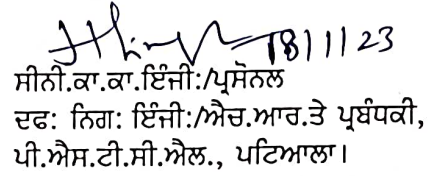 18/11/23
ਸੀਨੀ.ਕਾ.ਕਾ.ਇੰਜੀ:/ਪ੍ਰਸੋਨਲ
ਦਫ: ਨਿਗ: ਇੰਜੀ:/ਐਚ.ਆਰ.ਤੇ ਪ੍ਰਬੰਧਕੀ,
ਪੀ.ਐਸ.ਟੀ.ਸੀ.ਐਲ., ਪਟਿਆਲਾ।